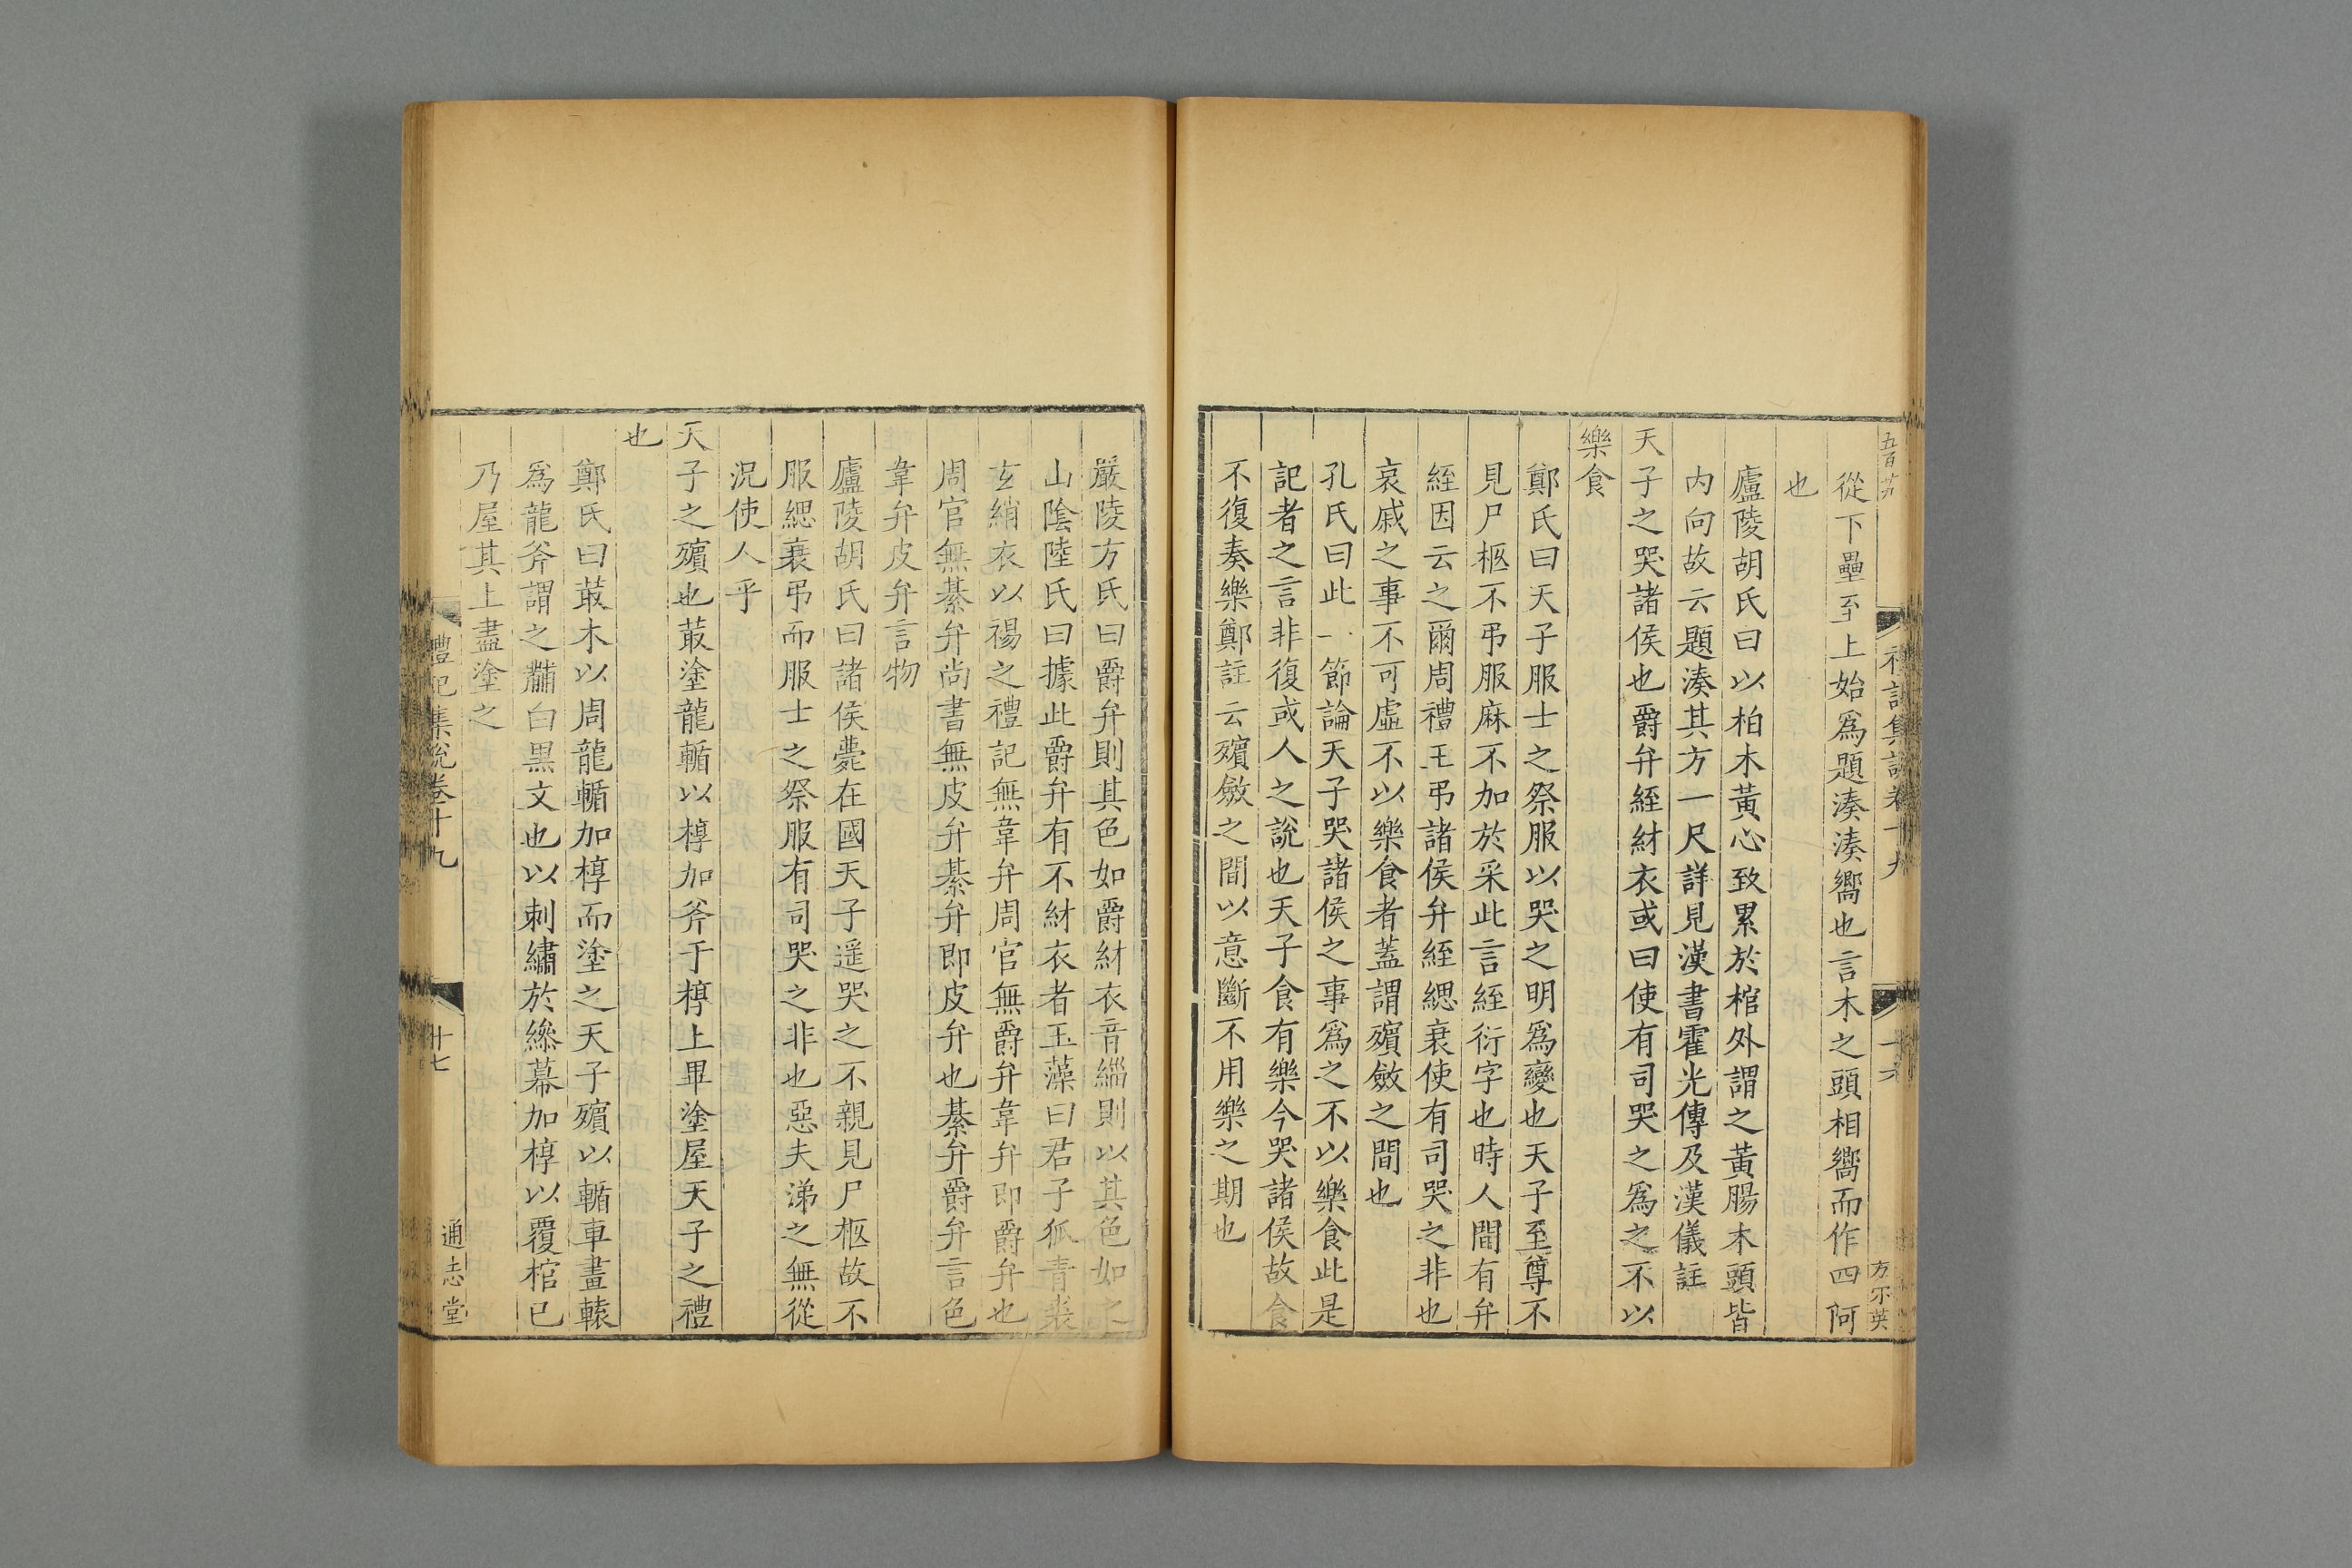 從下壘至上始爲題湊湊嚮也言木之頭相嚮而作四阿
也
廬陵胡氏曰以柏木黃心致累於棺外謂之黃腸木頭皆
内向故云題湊其方一尺詳見漢書霍光傳及漢儀註
天子之哭諸侯也爵弁絰紂衣或曰使有司哭之爲之不以
樂食
鄭氏曰天子服士之祭服以哭之明爲變也天子至尊不
見尸柩不弔服麻不加於采此言絰衍字也時人間有弁
絰因云之爾周禮王弔諸侯弁絰緦衰使有司哭之非也
哀戚之事不可虛不以樂食者蓋謂殯斂之間也
孔氏曰此一節論天子哭諸侯之事爲之不以樂食此是
記者之言非復或人之說也天子食有樂今哭諸侯故食
不復奏樂鄭註云殯斂之間以意斷不用樂之期也
嚴陵方氏曰爵弁則其色如爵紂衣音緇則以其色如之
山陰陸氏曰據此爵弁有不紂衣者玉藻曰君子狐青裘
玄綃衣以裼之禮記無韋弁周官無爵弁韋弁即爵弁也
周官無綦弁尚書無皮弁綦弁即皮弁也綦弁爵弁言色
韋弁皮弁言物
廬陵胡氏曰諸侯薨在國天子遥哭之不親見尸柩故不
服緦衰弔而服士之祭服有司哭之非也惡夫涕之無從
況使人乎
天子之殯也菆塗龍輴以椁加斧于椁上畢塗屋天子之禮
也
鄭氏曰菆木以周龍輴加椁而塗之天子殯以輴車畫轅
爲龍斧謂之黼白黑文也以刺繡於縿幕加椁以覆棺已
乃屋其上盡塗之
禮記集說卷十九
廿七
通志堂